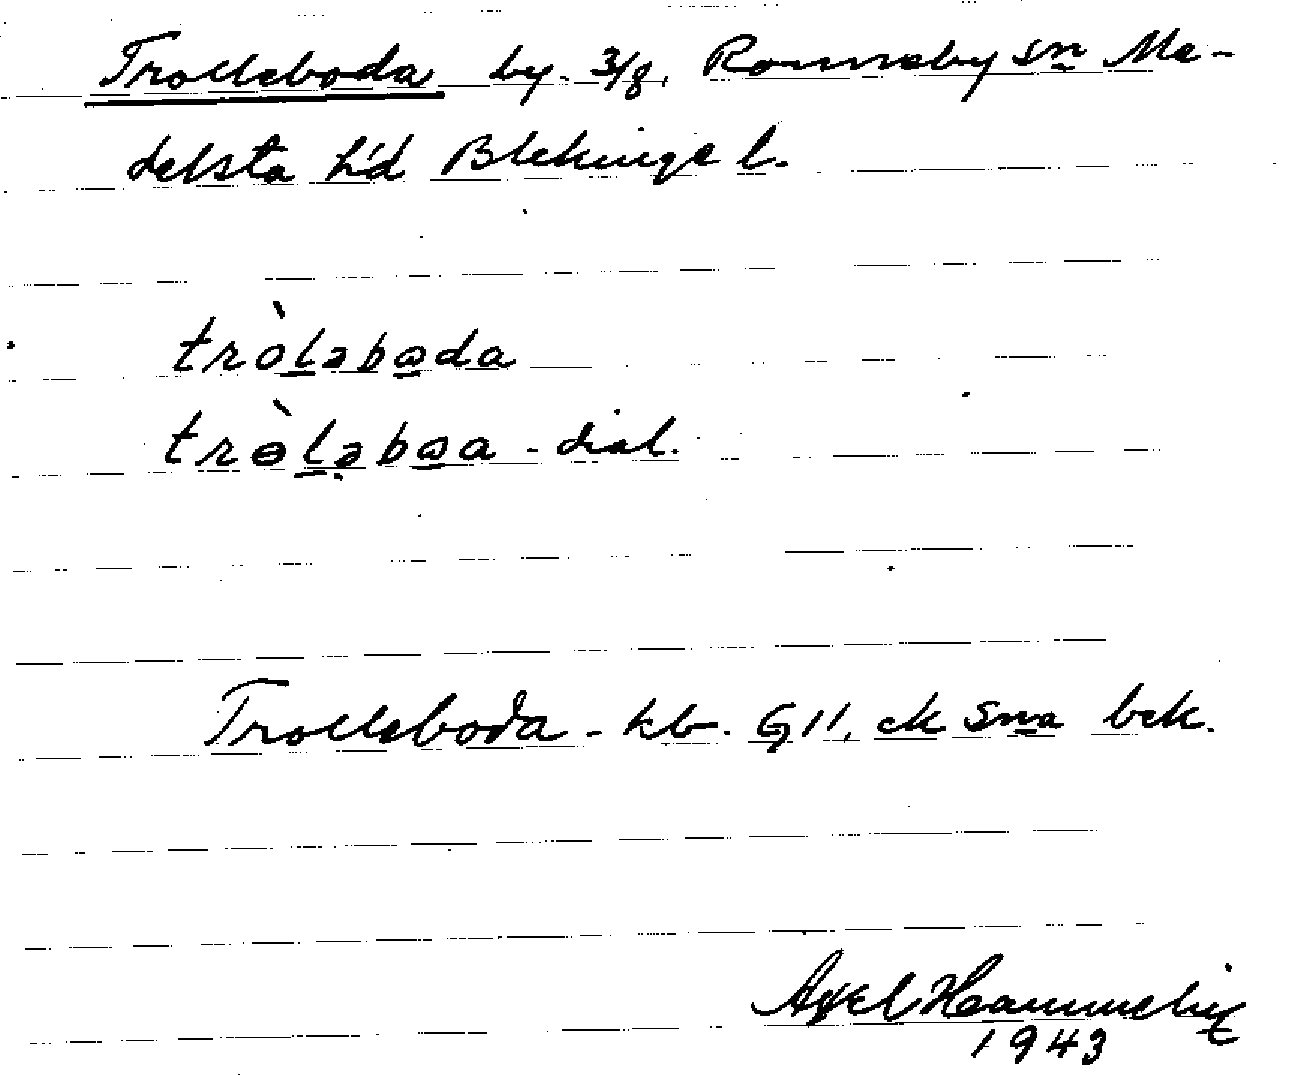 Trolleboda by. 3/8, Ronneby sn Me-
delsta hd Blekinge l.
tròləbɷda
trɵ̀lə̣bɷa - dial.
Trolleboda - kb. G11, ek sna bek.
Axel Hammelin
1943